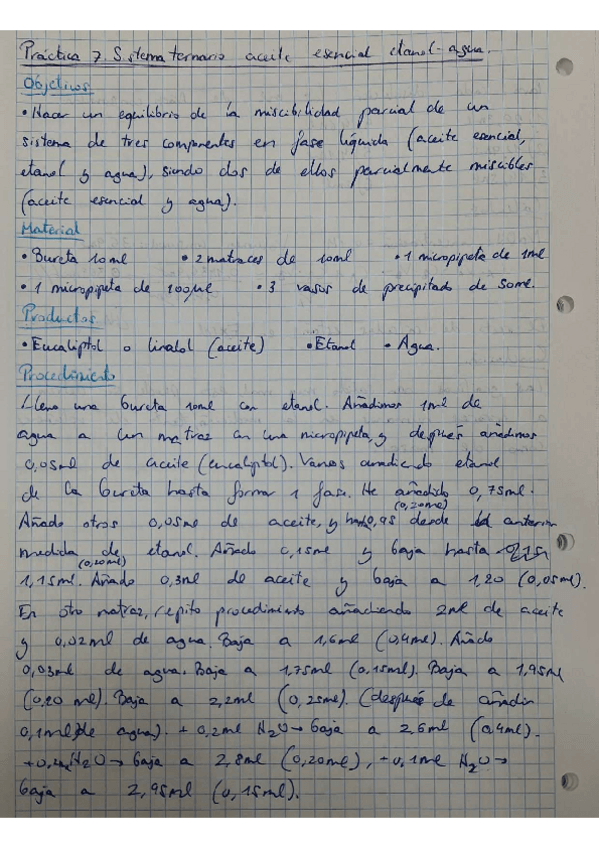 Práctica 7. Sistema ternario aceite esencial etanol-agua.
Objetivos
• Hacer un equilibrio de la miscibilidad parcial de un
sistema de tres componentes en fase líquida (aceite esencial,
etanol y agua), siendo dos de ellos parcialmente miscibles
(aceite esencial y agua).
Material
• Bureta 10ml • 2 matraces de 10ml • 1 micropipeta de 1ml
• 1 micropipeta de 100μl • 3 vasos de precipitado de 50ml.
Productos
• Eucaliptol o linalol (aceite) • Etanol • Agua.
Procedimiento
Lleno una bureta 10ml con etanol. Añadimos 1ml de
agua a un matraz con una micropipeta, y después añadimos
0,05ml de aceite (eucaliptol). Vamos añadiendo etanol
de la bureta hasta formar 1 fase. He añadido 0,75ml.
Añado otros 0,05ml de aceite, y 0,95 (0,20ml) desde la anterior
medida de etanol. Añado 0,15ml y baja hasta
1,15ml (0,20ml). Añado 0,3ml de aceite y baja a 1,20 (0,05ml).
En otro matraz, repito procedimiento añadiendo 2ml de aceite
y 0,02ml de agua. Baja a 1,6ml (0,4ml). Añado
0,03ml de agua. Baja a 1,75ml (0,15ml). Baja a 1,95ml
(0,20 ml). Baja a 2,2ml (0,25ml). (después de añadir
0,1ml de agua). + 0,2ml H₂O → baja a 2,6ml (0,4ml).
H₂O → baja a 2,8ml (0,20ml), + 0,1ml H₂O →
baja a 2,95ml (0,15ml).